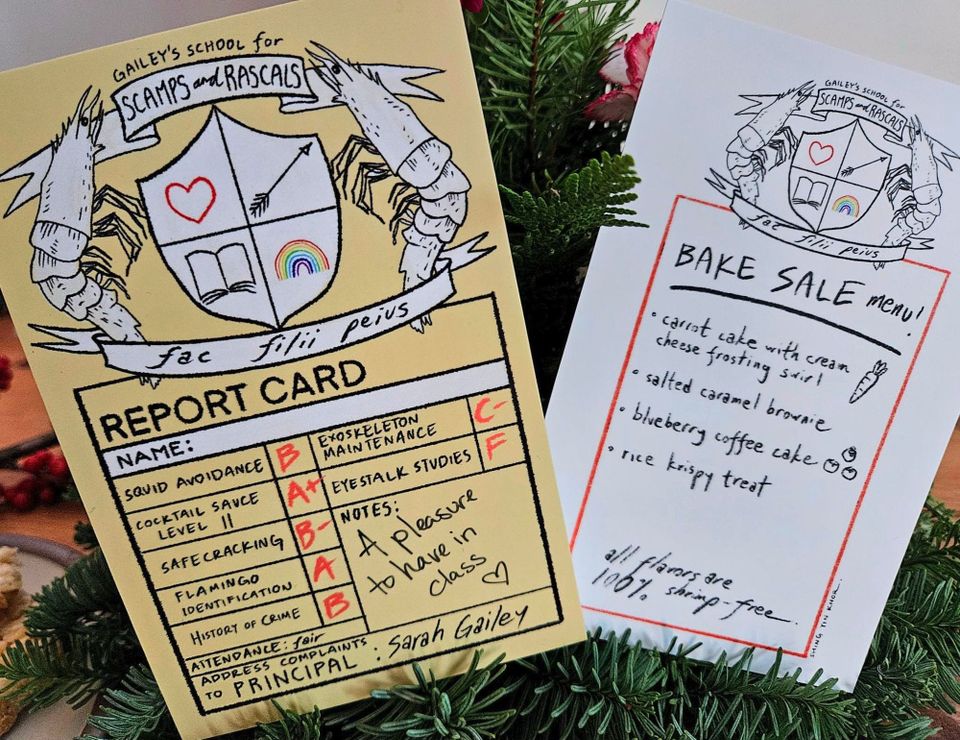 GAILEY'S SCHOOL for
SCAMPS and RASCALS
fac filii peius
REPORT CARD
NAME:
SQUID AVOIDANCE B
COCKTAIL SAUCE
LEVEL II A+
SAFECRACKING B-
FLAMINGO
IDENTIFICATION A
HISTORY OF CRIME B
EXOSKELETON
MAINTENANCE C-
EYESTALK STUDIES F
NOTES:
A pleasure
to have in
class
ATTENDANCE: fair
ADDRESS COMPLAINTS
TO PRINCIPAL: Sarah Gailey
GAILEY'S SCHOOL for
SCAMPS and RASCALS
fac filii peius
BAKE SALE menu!
• carrot cake with cream
cheese frosting swirl
• salted caramel brownie
• blueberry coffee cake
• rice krispy treat
all flavors are
100% shrimp-free.
SHING YIN KHOR